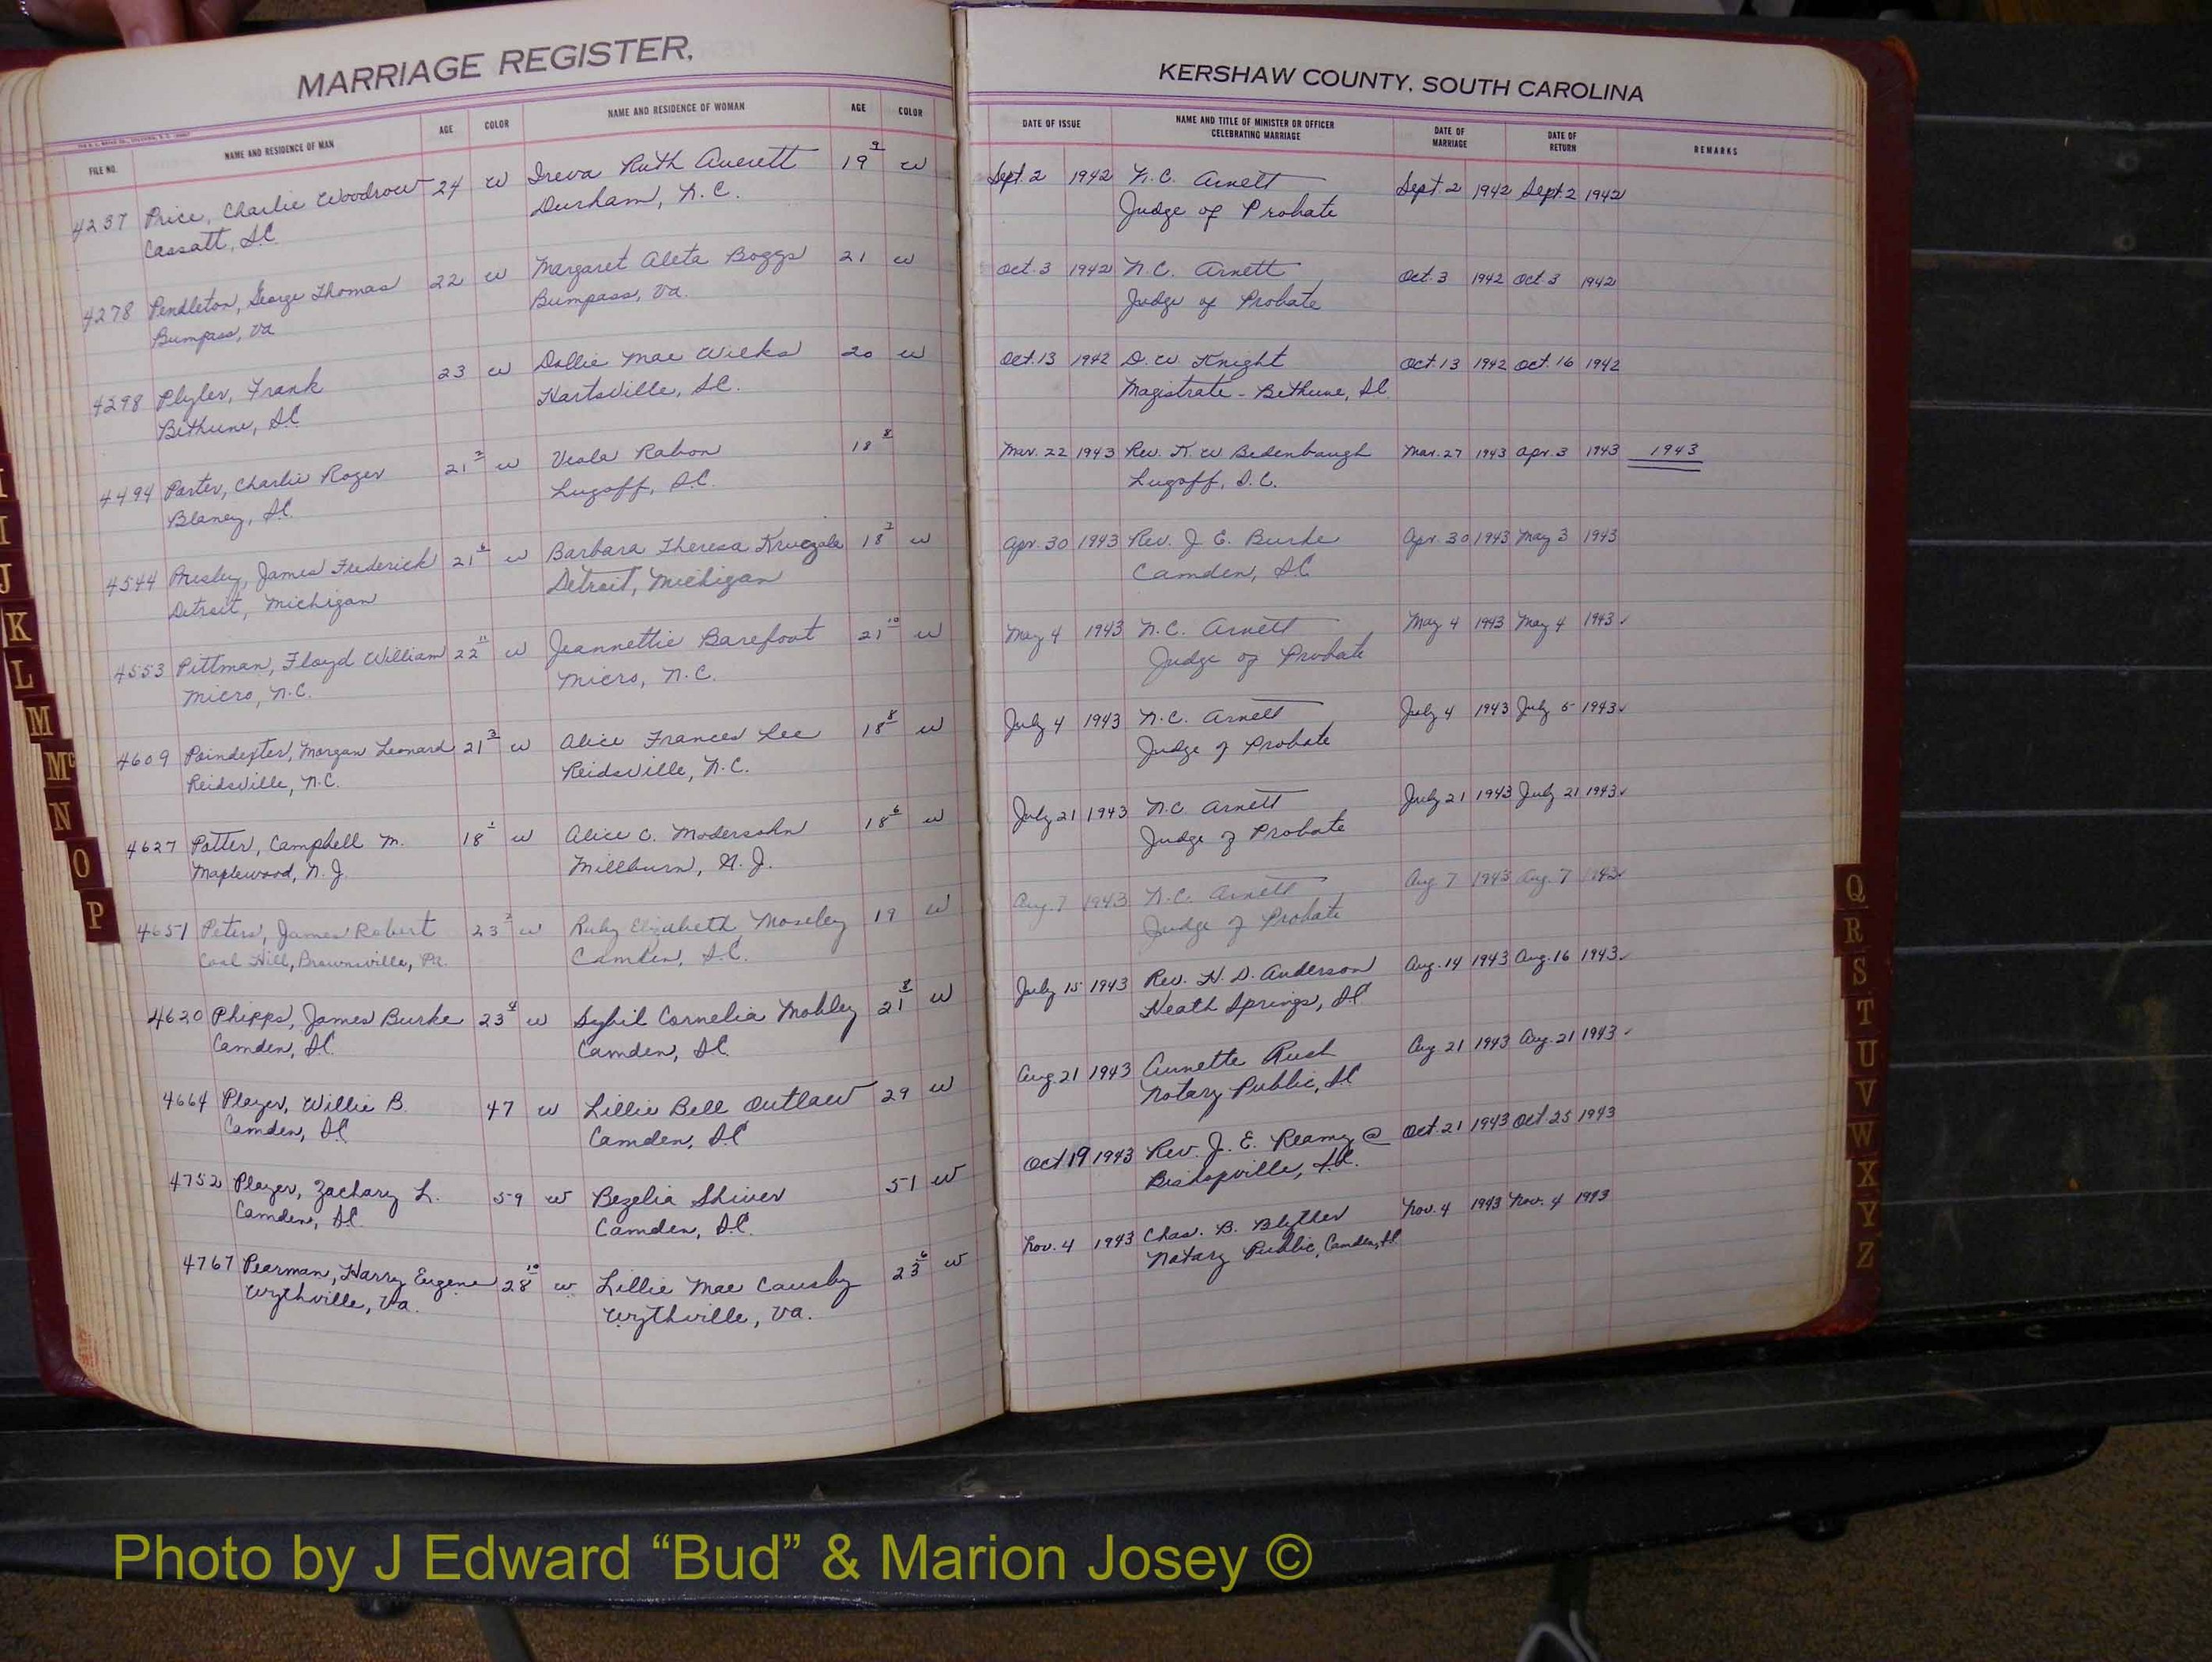 MARRIAGE REGISTER,
FILE NO. NAME AND RESIDENCE OF MAN AGE COLOR NAME AND RESIDENCE OF WOMAN AGE COLOR
4237 Price, Charlie Woodrow 24 w Ireva Ruth Averett 19 9 w
Cassatt, S.C. Durham, N.C.
4278 Pendleton, George Thomas 22 w Margaret Aleta Boggs 21 w
Bumpass, Va Bumpass, Va.
4298 Plyler, Frank 23 w Dollie Mae Wilks 20 w
Bethune, S.C. Hartsville, S.C.
4494 Porter, Charlie Roger 21 w Veola Rabon 18 8
Blaney, S.C. Lugoff, S.C.
4544 Presley, James Frederick 21 w Barbara Theresa 18 w
Detroit, Michigan Detroit, Michigan
4553 Pittman, Floyd William 22 11 w Jeannettie Barefoot 21 10 w
Micro, N.C. Micro, N.C.
4609 Poindexter, Morgan Leonard 21 3 w Alice Frances Lee 18 8 w
Reidsville, N.C. Reidsville, N.C.
4627 Potter, Campbell M. 18 1 w Alice C. Modersohn 18 6 w
Maplewood, N.J. Millburn, N.J.
4651 Peters, James Robert 23 w Ruby Elizabeth Moseley 19 w
Coal Hill, Brownsville, Pa. Camden, S.C.
4620 Phipps, James Burke 23 4 w Sybil Cornelia Mobley 21 8 w
Camden, S.C. Camden, S.C.
4664 Player, Willie B. 47 w Lillie Bell Outlaw 29 w
Camden, S.C. Camden, S.C.
4752 Player, Zachary L. 59 w Bezelia Shiver 51 w
Camden, S.C. Camden, S.C.
4767 Pearman, Harry Eugene 28 10 w Lillie Mae Causby 23 6 w
Wythville, Va. Wythville, Va.
I
I
J
K
L
M
Mc
N
O
P
KERSHAW COUNTY, SOUTH CAROLINA
DATE OF ISSUE NAME AND TITLE OF MINISTER OR OFFICER CELEBRATING MARRIAGE DATE OF MARRIAGE DATE OF RETURN REMARKS
Sept. 2 1942 N.C. Arnett Sept. 2 1942 Sept. 2 1942
Judge of Probate
Oct. 3 1942 N.C. Arnett Oct. 3 1942 Oct. 3 1942
Judge of Probate
Oct. 13 1942 D.W. Knight Oct. 13 1942 Oct. 16 1942
Magistrate - Bethune, S.C.
Mar. 22 1943 Rev. K.W. Bedenbaugh Mar. 27 1943 Apr. 3 1943 1943
Lugoff, S.C.
Apr. 30 1943 Rev. J.E. Burke Apr. 30 1943 May 3 1943
Camden, S.C.
May 4 1943 N.C. Arnett May 4 1943 May 4 1943 ✓
Judge of Probate
July 4 1943 N.C. Arnett July 4 1943 July 5 1943 ✓
Judge of Probate
July 21 1943 N.C. Arnett July 21 1943 July 21 1943 ✓
Judge of Probate
Aug. 7 1943 N.C. Arnett Aug 7 1943 Aug. 7 1943 ✓
Judge of Probate
July 15 1943 Rev. H.D. Anderson Aug. 14 1943 Aug. 16 1943 ✓
Heath Springs, S.C.
Aug. 21 1943 Aunette Rush Aug 21 1943 Aug. 21 1943 ✓
Notary Public, S.C.
Oct 19 1943 Rev. J.E. Reamy @ Oct. 21 1943 Oct 25 1943
Bishopville, S.C.
Nov. 4 1943 Chas. B. Nov. 4 1943 Nov. 4 1943
Notary Public, Camden, S.C.
Q
R
S
T
U
V
W
X
Y
Z
Photo by J Edward “Bud” & Marion Josey ©